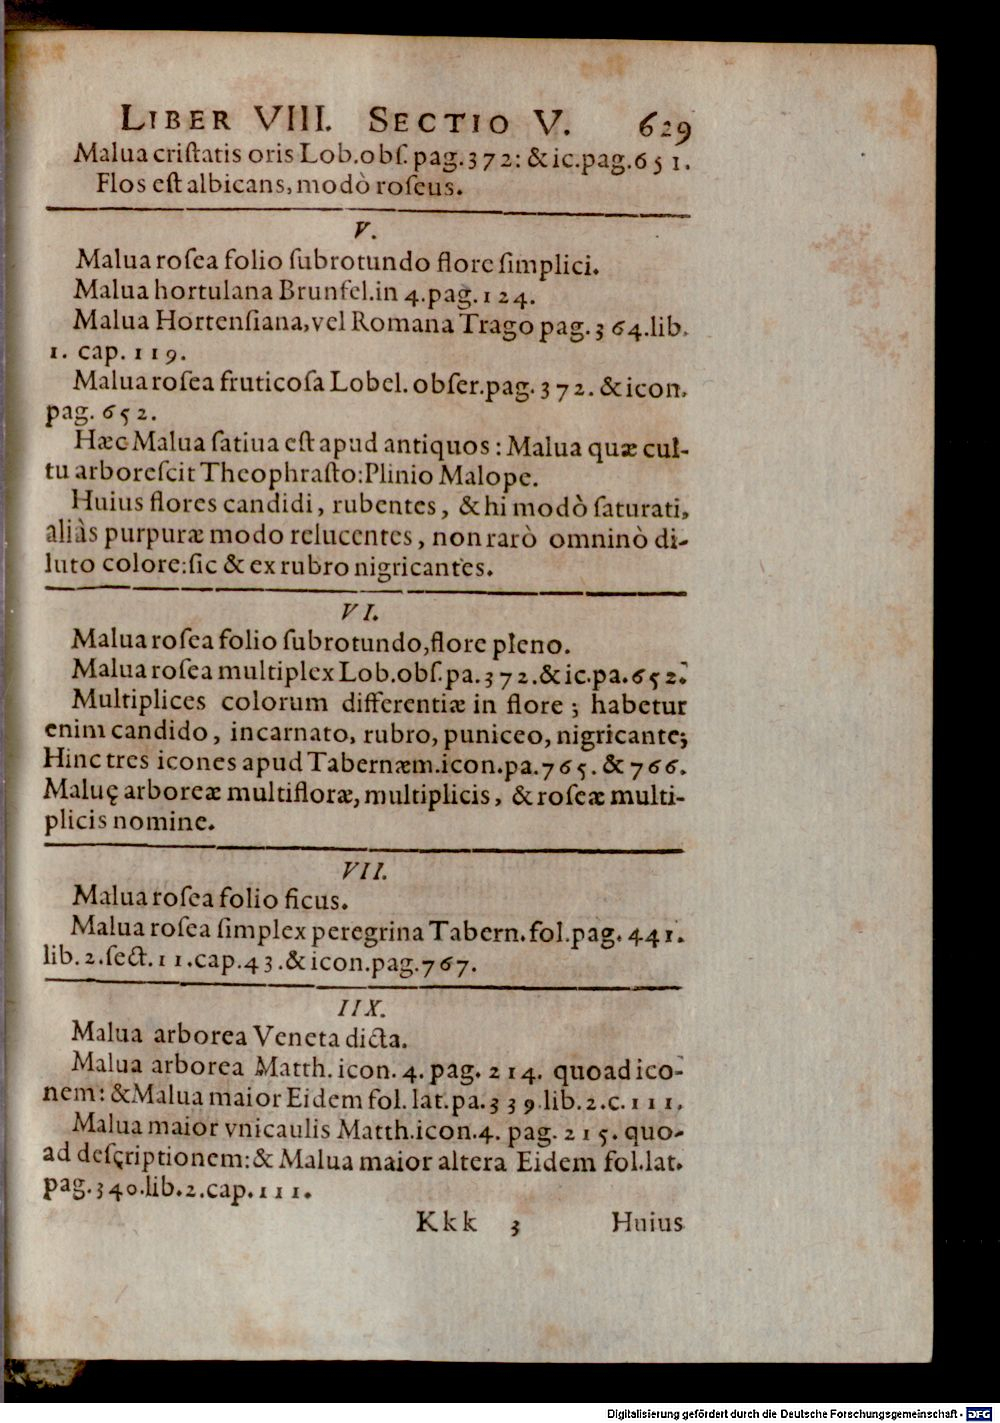 LIBER VIII. SECTIO V. 629
Malua criſtatis oris Lob.obſ. pag.372: & ic.pag.651.
Flos eſt albicans, modò roſeus.
V.
Malua roſea folio ſubrotundo flore ſimplici.
Malua hortulana Brunfel.in 4.pag.124.
Malua Hortenſiana, vel Romana Trago pag.364.lib.
1. cap. 119.
Malua roſea fruticoſa Lobel. obſer.pag.372. & icon.
pag. 652.
Hæc Malua ſatiua eſt apud antiquos: Malua quæ cul-
tu arboreſcit Theophraſto: Plinio Malope.
Huius flores candidi, rubentes, & hi modò ſaturati,
aliàs purpuræ modo relucentes, non rarò omninò di-
luto colore: ſic & ex rubro nigricantes.
VI.
Malua roſea folio ſubrotundo, flore pleno.
Malua roſea multiplex Lob.obſ.pa.372.& ic.pa.652.
Multiplices colorum differentiæ in flore; habetur
enim candido, incarnato, rubro, puniceo, nigricante;
Hinc tres icones apud Tabernæm.icon.pa.765. & 766.
Maluę arboreæ multifloræ, multiplicis, & roſeæ multi-
plicis nomine.
VII.
Malua roſea folio ficus.
Malua roſea ſimplex peregrina Tabern.fol.pag.441.
lib.2.ſect.11.cap.43.& icon.pag.767.
IIX.
Malua arborea Veneta dicta.
Malua arborea Matth. icon. 4. pag. 214. quoad ico-
nem: & Malua maior Eidem fol. lat.pa.339.lib.2.c.111.
Malua maior vnicaulis Matth.icon.4. pag. 215. quo-
ad deſçriptionem: & Malua maior altera Eidem fol.lat.
pag.340.lib.2.cap.111.
Kkk 3 Huius
Digitalisierung gefördert durch die Deutsche Forschungsgemeinschaft - DFG